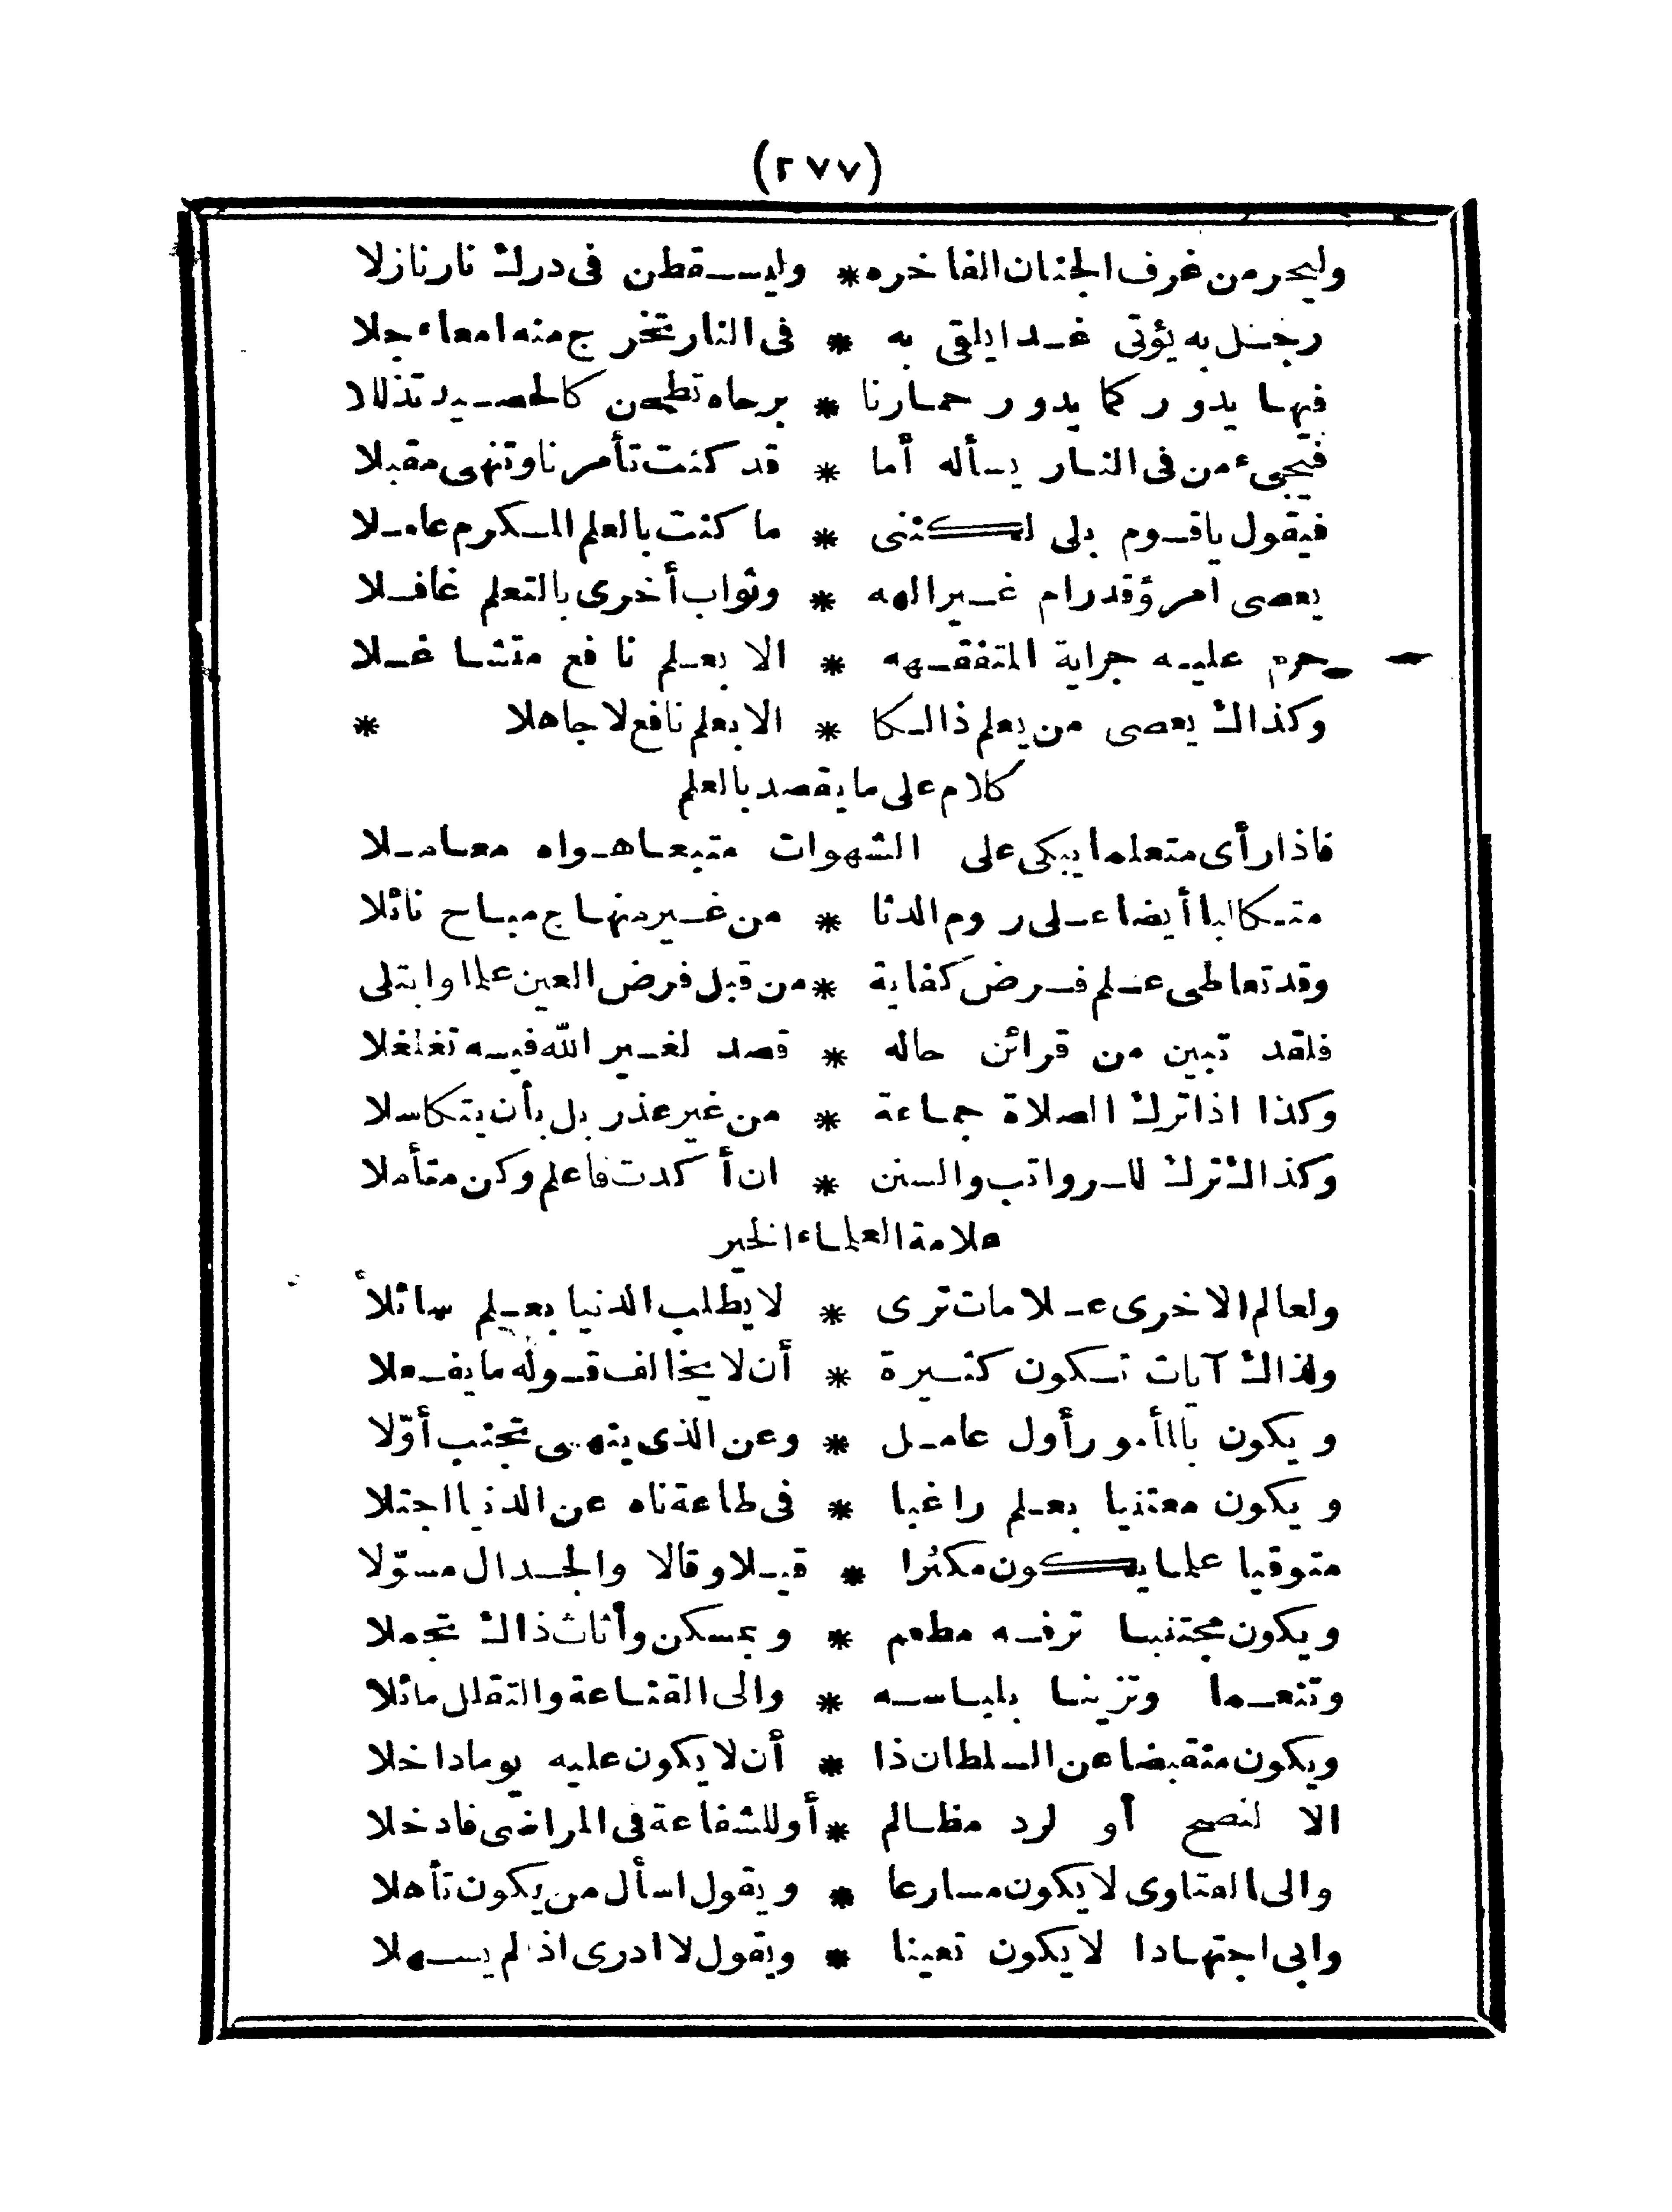 (٢٧٧)
وليحرمن غرف الجنان الفاخره * وليسقطن فى درك نار نازلا
رجل به يؤتى غدا يلقى به * فى النار تخرج منه امعاء جلا
فيها يدور كما يدور حمارنا * برحاه تطحن كالحصيد تذللا
فيجىء من فى النار يسأله أما * قد كنت تأمرنا وتنهى مقبلا
فيقول ياقوم بلى لكننى * ما كنت بالعلم المكرم عاملا
يعصى امرؤ قد رام غير الهه * وثواب أخرى بالتعلم غافلا
حرم عليه جراية المتفقهه * الا بعلم نافع متشاغلا
وكذاك يعصى من يعلم ذالكا * الا بعلم نافع لا جاهلا *
كلام على ما يقصد بالعلم
فاذا رأى متعلما يبكى على الشهوات متبعا هواه معاملا
متكالبا أيضا على روم الدنا * من غير منهاج مباح نائلا
وقد تعاطى علم فرض كفاية * من قبل فرض العين علما وابتلى
فلقد تبين من قرائن حاله * قصد لغير الله فيه تغلغلا
وكذا اذا ترك الصلاة جماعة * من غير عذر بل بأن يتكاسلا
وكذاك ترك للرواتب والسنن * ان أكدت فاعلم وكن متأملا
علامة العلماء الخير
ولعالم الاخرى علامات ترى * لا يطلب الدنيا بعلم سائلا
ولذاك آيات تكون كثيرة * أن لا يخالف قوله ما يفعلا
ويكون بالأمور أول عامل * وعن الذى ينهى تجنب أوّلا
ويكون معتنيا بعلم راغبا * فى طاعة ناه عن الدنيا اجتلا
متوقيا علما يكون مكثرا * قيلا وقالا والجدال مسوّلا
ويكون مجتنبا ترفه مطعم * وبمسكن وأثاث ذاك تجملا
وتنعما وتزينا بلباسه * والى القناعة والتقلل مائلا
ويكون منقبضا عن السلطان ذا * أن لا يكون عليه يوما داخلا
الا لنصح أو لرد مظالم * أو للشفاعة فى المراضى فادخلا
والى الفتاوى لا يكون مسارعا * ويقول اسأل من يكون تأهلا
وابى اجتهادا لا يكون تعينا * ويقول لا ادرى اذ لم يسهلا